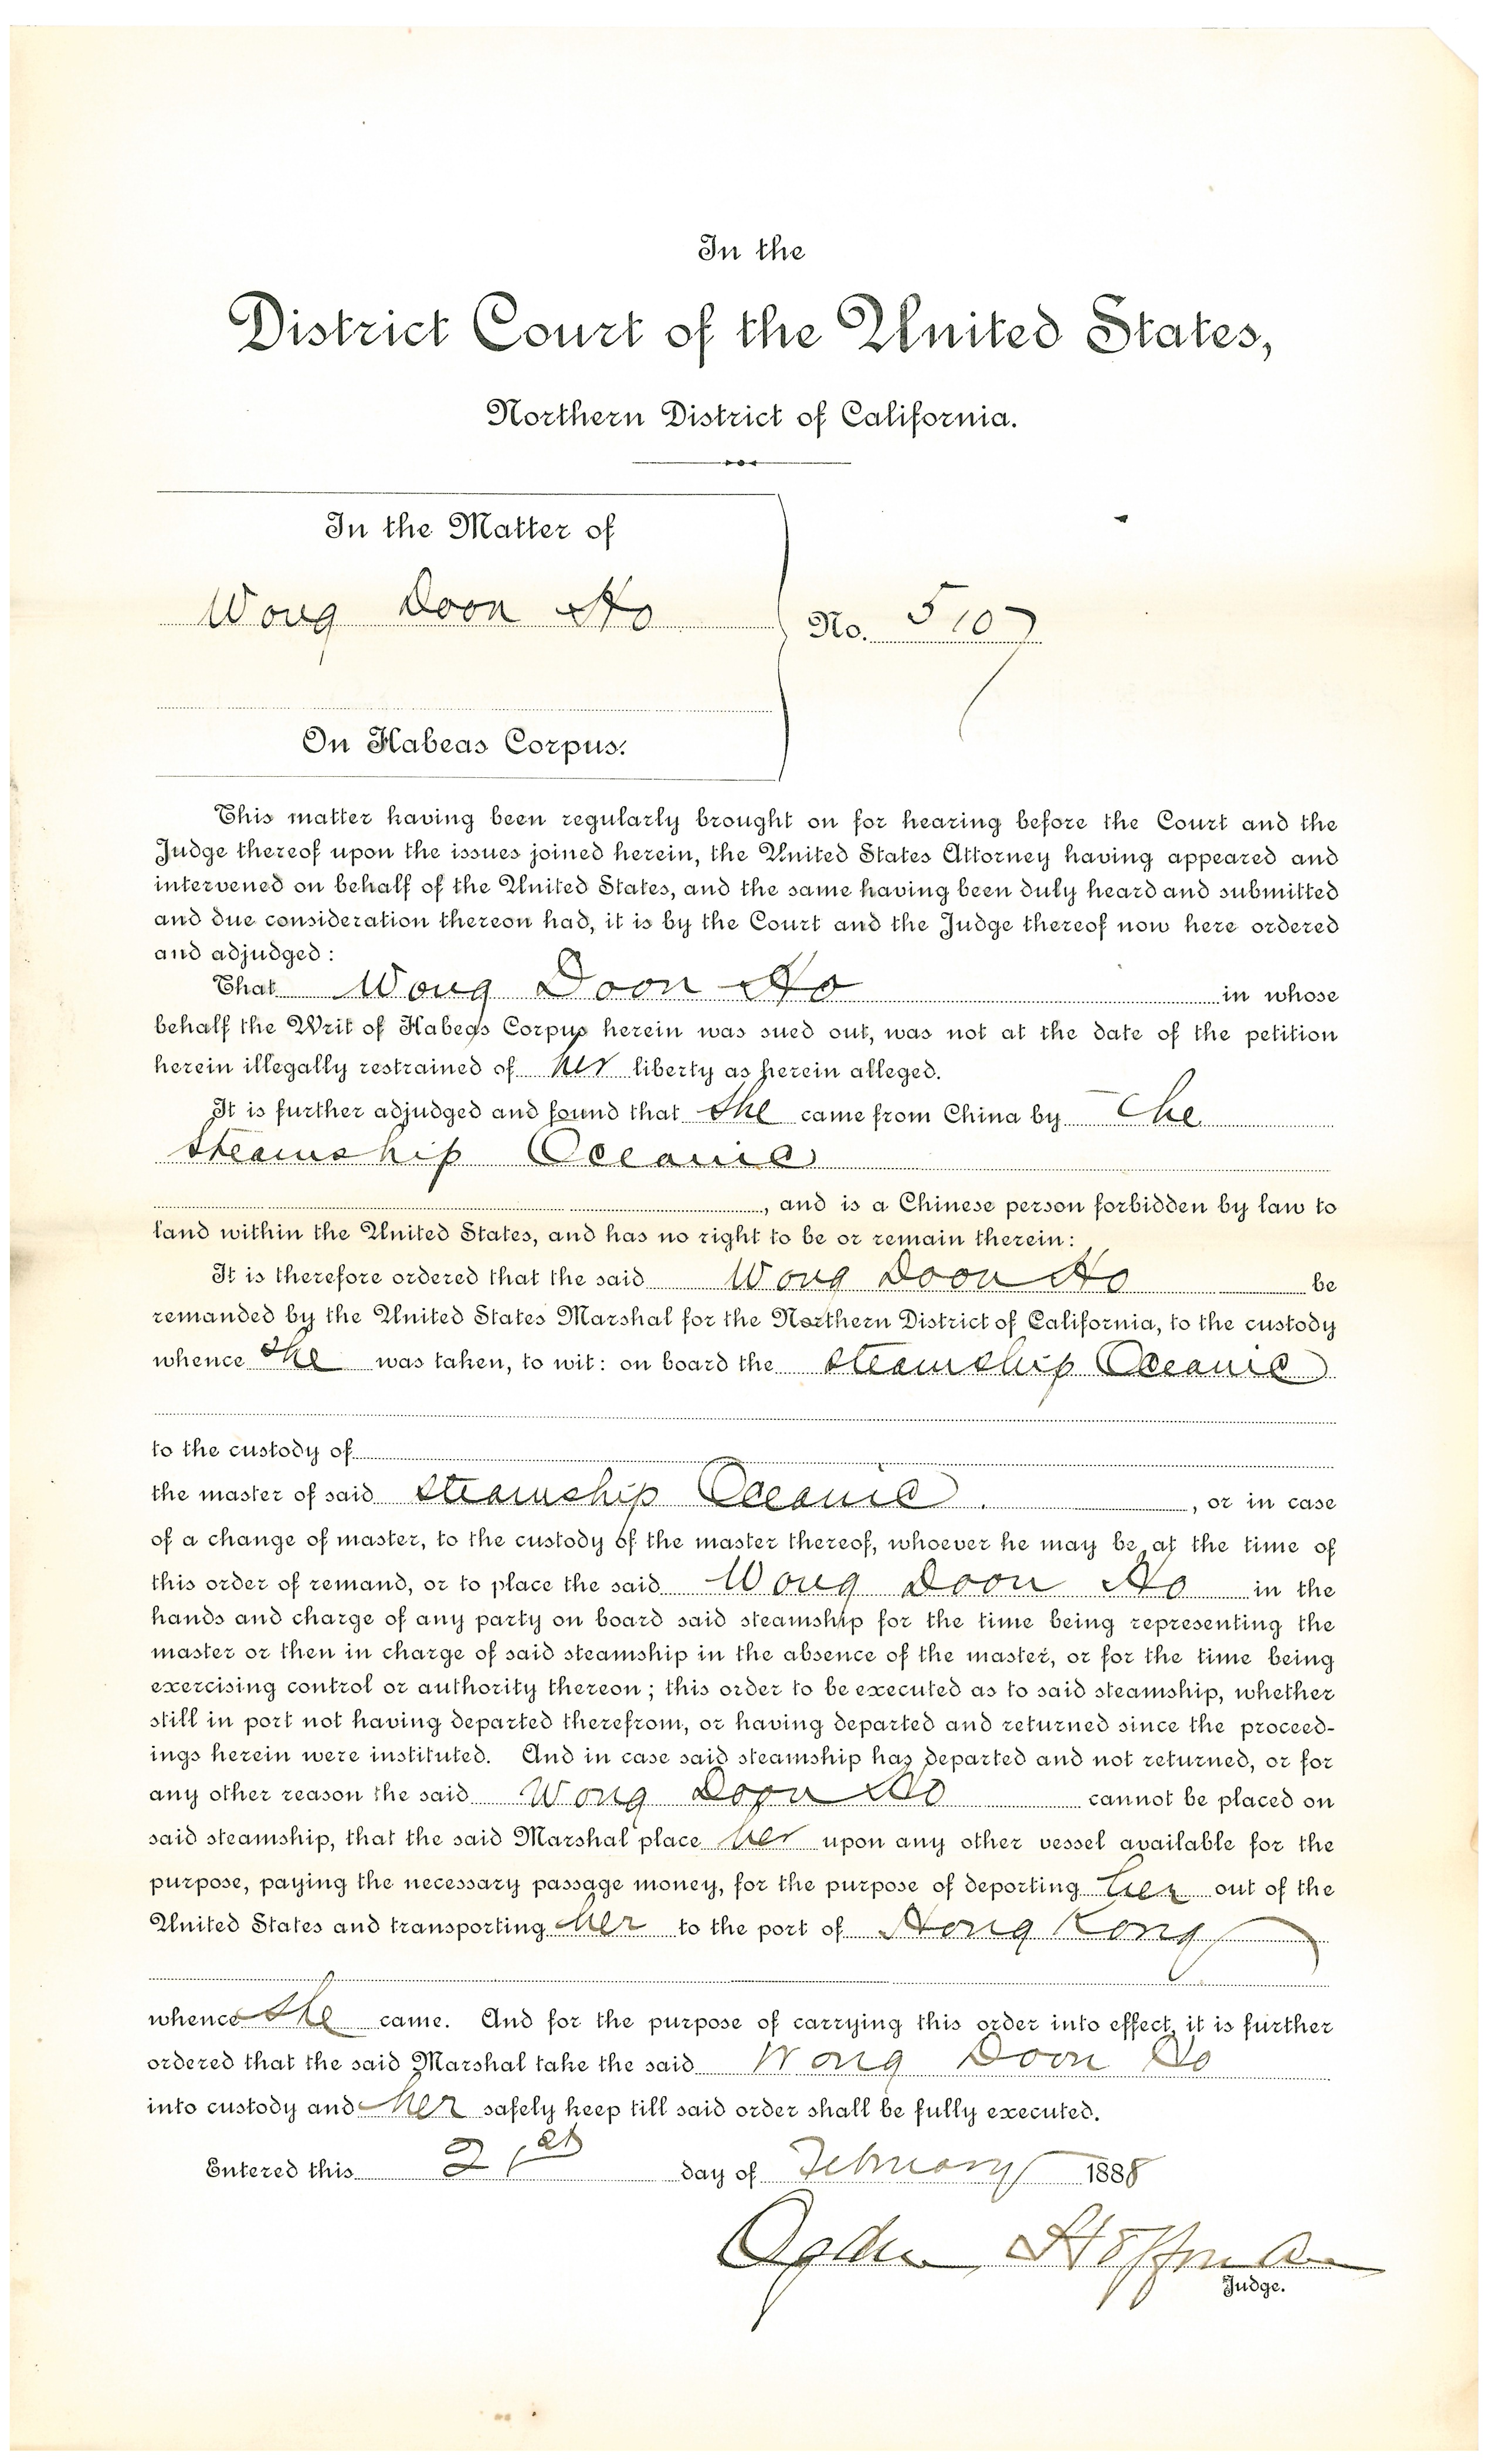 In the
District Court of the United States,
Northern District of California.
In the Matter of
Wong Doon Ho
No. 5107
On Habeas Corpus.
This matter having been regularly brought on for hearing before the Court and the
Judge thereof upon the issues joined herein, the United States Attorney having appeared and
intervened on behalf of the United States, and the same having been duly heard and submitted
and due consideration thereon had, it is by the Court and the Judge thereof now here ordered
and adjudged:
That Wong Doon Ho in whose
behalf the Writ of Habeas Corpus herein was sued out, was not at the date of the petition
herein illegally restrained of her liberty as herein alleged.
It is further adjudged and found that she came from China by the
steamship Oceanic
, and is a Chinese person forbidden by law to
land within the United States, and has no right to be or remain therein:
It is therefore ordered that the said Wong Doon Ho be
remanded by the United States Marshal for the Northern District of California, to the custody
whence she was taken, to wit: on board the steamship Oceanic
to the custody of
the master of said steamship Oceanic. , or in case
of a change of master, to the custody of the master thereof, whoever he may be at the time of
this order of remand, or to place the said Wong Doon Ho in the
hands and charge of any party on board said steamship for the time being representing the
master or then in charge of said steamship in the absence of the master, or for the time being
exercising control or authority thereon; this order to be executed as to said steamship, whether
still in port not having departed therefrom, or having departed and returned since the proceed-
ings herein were instituted. And in case said steamship has departed and not returned, or for
any other reason the said Wong Doon Ho cannot be placed on
said steamship, that the said Marshal place her upon any other vessel available for the
purpose, paying the necessary passage money, for the purpose of deporting her out of the
United States and transporting her to the port of Hong Kong
whence she came. And for the purpose of carrying this order into effect, it is further
ordered that the said Marshal take the said Wong Doon Ho
into custody and her safely keep till said order shall be fully executed.
Entered this 21st day of February 1888
Ogden Hoffman
Judge.